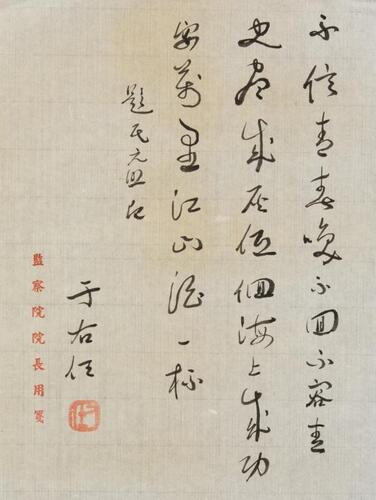 不信青春喚不回不容青
史盡成灰低佪海上成功
宴萬里江山酒一杯
題民元照相
于右任
右任
監察院院長用箋